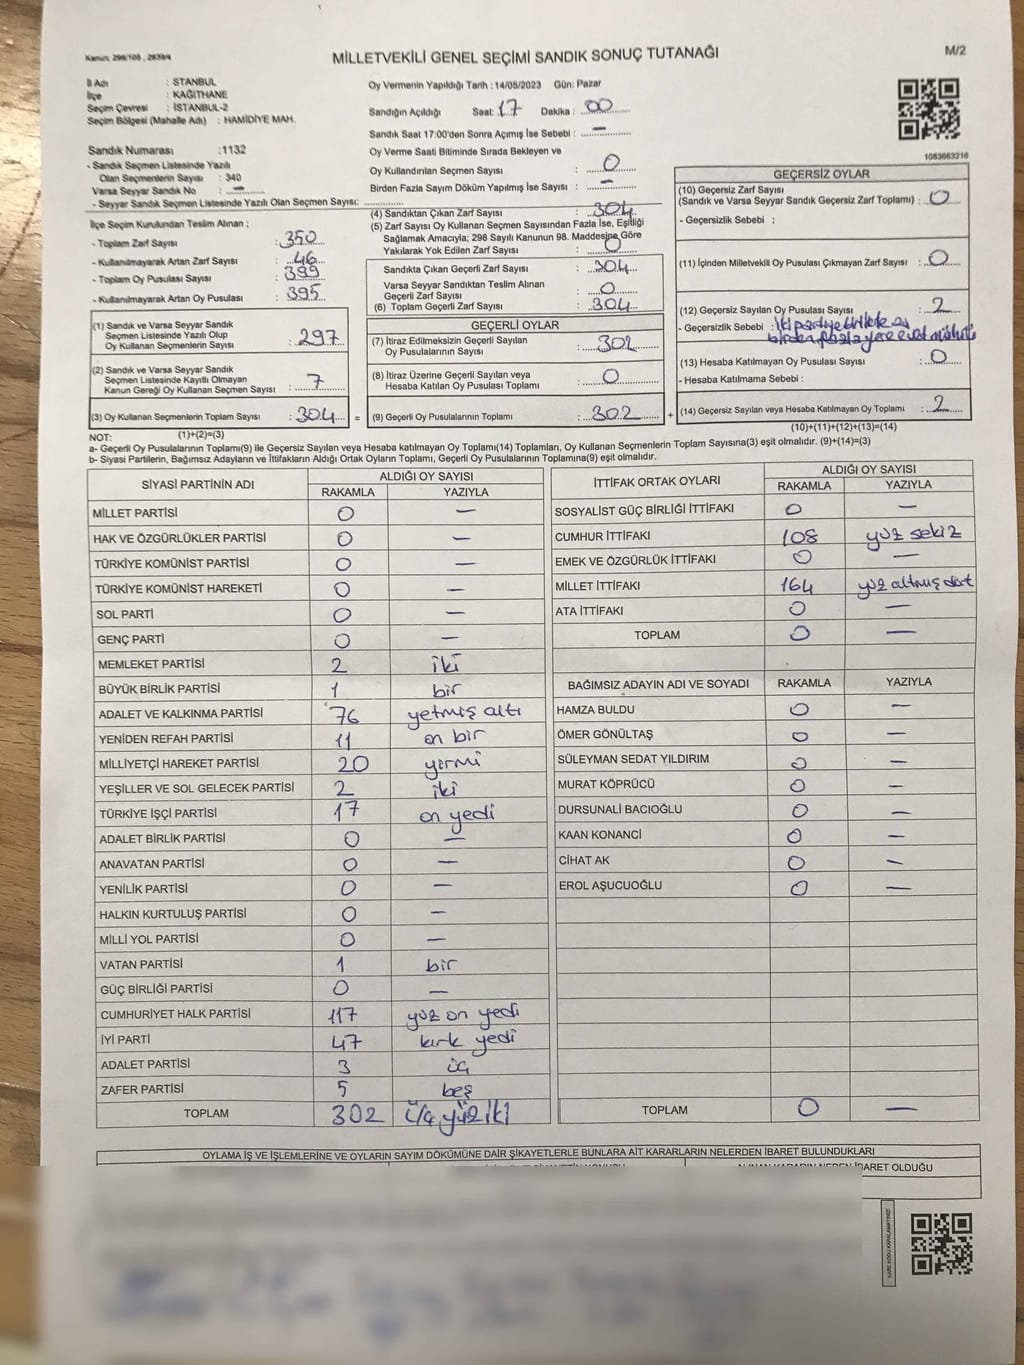 Kanun: 298/105 , 2839/4
MİLLETVEKİLİ GENEL SEÇİMİ SANDIK SONUÇ TUTANAĞI
M/2
İl Adı : İSTANBUL
İlçe : KAĞITHANE
Seçim Çevresi : İSTANBUL-2
Seçim Bölgesi (Mahalle Adı) : HAMİDİYE MAH.
Oy Vermenin Yapıldığı Tarih : 14/05/2023 Gün: Pazar
Sandığın Açıldığı Saat: 17 Dakika : 00
Sandık Saat 17:00'den Sonra Açılmış İse Sebebi : —
Sandık Numarası :1132
- Sandık Seçmen Listesinde Yazılı
Olan Seçmenlerin Sayısı : 340
Varsa Seyyar Sandık No : —
- Seyyar Sandık Seçmen Listesinde Yazılı Olan Seçmen Sayısı:
Oy Verme Saati Bitiminde Sırada Bekleyen ve
Oy Kullandırılan Seçmen Sayısı : 0
Birden Fazla Sayım Döküm Yapılmış İse Sayısı : —
1083663216
İlçe Seçim Kurulundan Teslim Alınan ;
- Toplam Zarf Sayısı : 350
- Kullanılmayarak Artan Zarf Sayısı : 46
- Toplam Oy Pusulası Sayısı : 399
- Kullanılmayarak Artan Oy Pusulası : 395
(1) Sandık ve Varsa Seyyar Sandık
Seçmen Listesinde Yazılı Olup
Oy Kullanan Seçmenlerin Sayısı : 297
(2) Sandık ve Varsa Seyyar Sandık
Seçmen Listesinde Kayıtlı Olmayan
Kanun Gereği Oy Kullanan Seçmen Sayısı : 7
(3) Oy Kullanan Seçmenlerin Toplam Sayısı : 304 =
(1)+(2)=(3)
(4) Sandıktan Çıkan Zarf Sayısı : 304
(5) Zarf Sayısı Oy Kullanan Seçmen Sayısından Fazla İse, Eşitliği
Sağlamak Amacıyla; 298 Sayılı Kanunun 98. Maddesine Göre
Yakılarak Yok Edilen Zarf Sayısı : 0
Sandıkta Çıkan Geçerli Zarf Sayısı : 304
Varsa Seyyar Sandıktan Teslim Alınan
Geçerli Zarf Sayısı : 0
(6) Toplam Geçerli Zarf Sayısı : 304
GEÇERLİ OYLAR
(7) İtiraz Edilmeksizin Geçerli Sayılan
Oy Pusulalarının Sayısı : 302
(8) İtiraz Üzerine Geçerli Sayılan veya
Hesaba Katılan Oy Pusulası Toplamı : 0
(9) Geçerli Oy Pusulalarının Toplamı : 302 +
GEÇERSİZ OYLAR
(10) Geçersiz Zarf Sayısı
(Sandık ve Varsa Seyyar Sandık Geçersiz Zarf Toplamı) : 0
- Geçersizlik Sebebi :
(11) İçinden Milletvekili Oy Pusulası Çıkmayan Zarf Sayısı : 0
(12) Geçersiz Sayılan Oy Pusulası Sayısı : 2
- Geçersizlik Sebebi : İki partiye birlikte oy
birden fazla yere evet mührü
(13) Hesaba Katılmayan Oy Pusulası Sayısı : 0
- Hesaba Katılmama Sebebi :
(14) Geçersiz Sayılan veya Hesaba Katılmayan Oy Toplamı : 2
(10)+(11)+(12)+(13)=(14)
NOT:
a- Geçerli Oy Pusulalarının Toplamı(9) ile Geçersiz Sayılan veya Hesaba katılmayan Oy Toplamı(14) Toplamları, Oy Kullanan Seçmenlerin Toplam Sayısına(3) eşit olmalıdır. (9)+(14)=(3)
b- Siyasi Partilerin, Bağımsız Adayların ve İttifakların Aldığı Ortak Oyların Toplamı, Geçerli Oy Pusulalarının Toplamına(9) eşit olmalıdır.
SİYASİ PARTİNİN ADI ALDIĞI OY SAYISI
RAKAMLA YAZIYLA
MİLLET PARTİSİ 0 —
HAK VE ÖZGÜRLÜKLER PARTİSİ 0 —
TÜRKİYE KOMÜNİST PARTİSİ 0 —
TÜRKİYE KOMÜNİST HAREKETİ 0 —
SOL PARTİ 0 —
GENÇ PARTİ 0 —
MEMLEKET PARTİSİ 2 iki
BÜYÜK BİRLİK PARTİSİ 1 bir
ADALET VE KALKINMA PARTİSİ 76 yetmiş altı
YENİDEN REFAH PARTİSİ 11 on bir
MİLLİYETÇİ HAREKET PARTİSİ 20 yirmi
YEŞİLLER VE SOL GELECEK PARTİSİ 2 iki
TÜRKİYE İŞÇİ PARTİSİ 17 on yedi
ADALET BİRLİK PARTİSİ 0 —
ANAVATAN PARTİSİ 0 —
YENİLİK PARTİSİ 0 —
HALKIN KURTULUŞ PARTİSİ 0 —
MİLLİ YOL PARTİSİ 0 —
VATAN PARTİSİ 1 bir
GÜÇ BİRLİĞİ PARTİSİ 0 —
CUMHURİYET HALK PARTİSİ 117 yüz on yedi
İYİ PARTİ 47 kırk yedi
ADALET PARTİSİ 3 üç
ZAFER PARTİSİ 5 beş
TOPLAM 302 üç yüz iki
İTTİFAK ORTAK OYLARI ALDIĞI OY SAYISI
RAKAMLA YAZIYLA
SOSYALİST GÜÇ BİRLİĞİ İTTİFAKI 0 —
CUMHUR İTTİFAKI 108 yüz sekiz
EMEK VE ÖZGÜRLÜK İTTİFAKI 0 —
MİLLET İTTİFAKI 164 yüz altmış dört
ATA İTTİFAKI 0 —
TOPLAM 0 —
BAĞIMSIZ ADAYIN ADI VE SOYADI RAKAMLA YAZIYLA
HAMZA BULDU 0 —
ÖMER GÖNÜLTAŞ 0 —
SÜLEYMAN SEDAT YILDIRIM 0 —
MURAT KÖPRÜCÜ 0 —
DURSUNALİ BACIOĞLU 0 —
KAAN KONANCİ 0 —
CİHAT AK 0 —
EROL AŞUCUOĞLU 0 —
TOPLAM 0 —
OYLAMA İŞ VE İŞLEMLERİNE VE OYLARIN SAYIM DÖKÜMÜNE DAİR ŞİKAYETLERLE BUNLARA AİT KARARLARIN NELERDEN İBARET BULUNDUKLARI
İBARET OLDUĞU